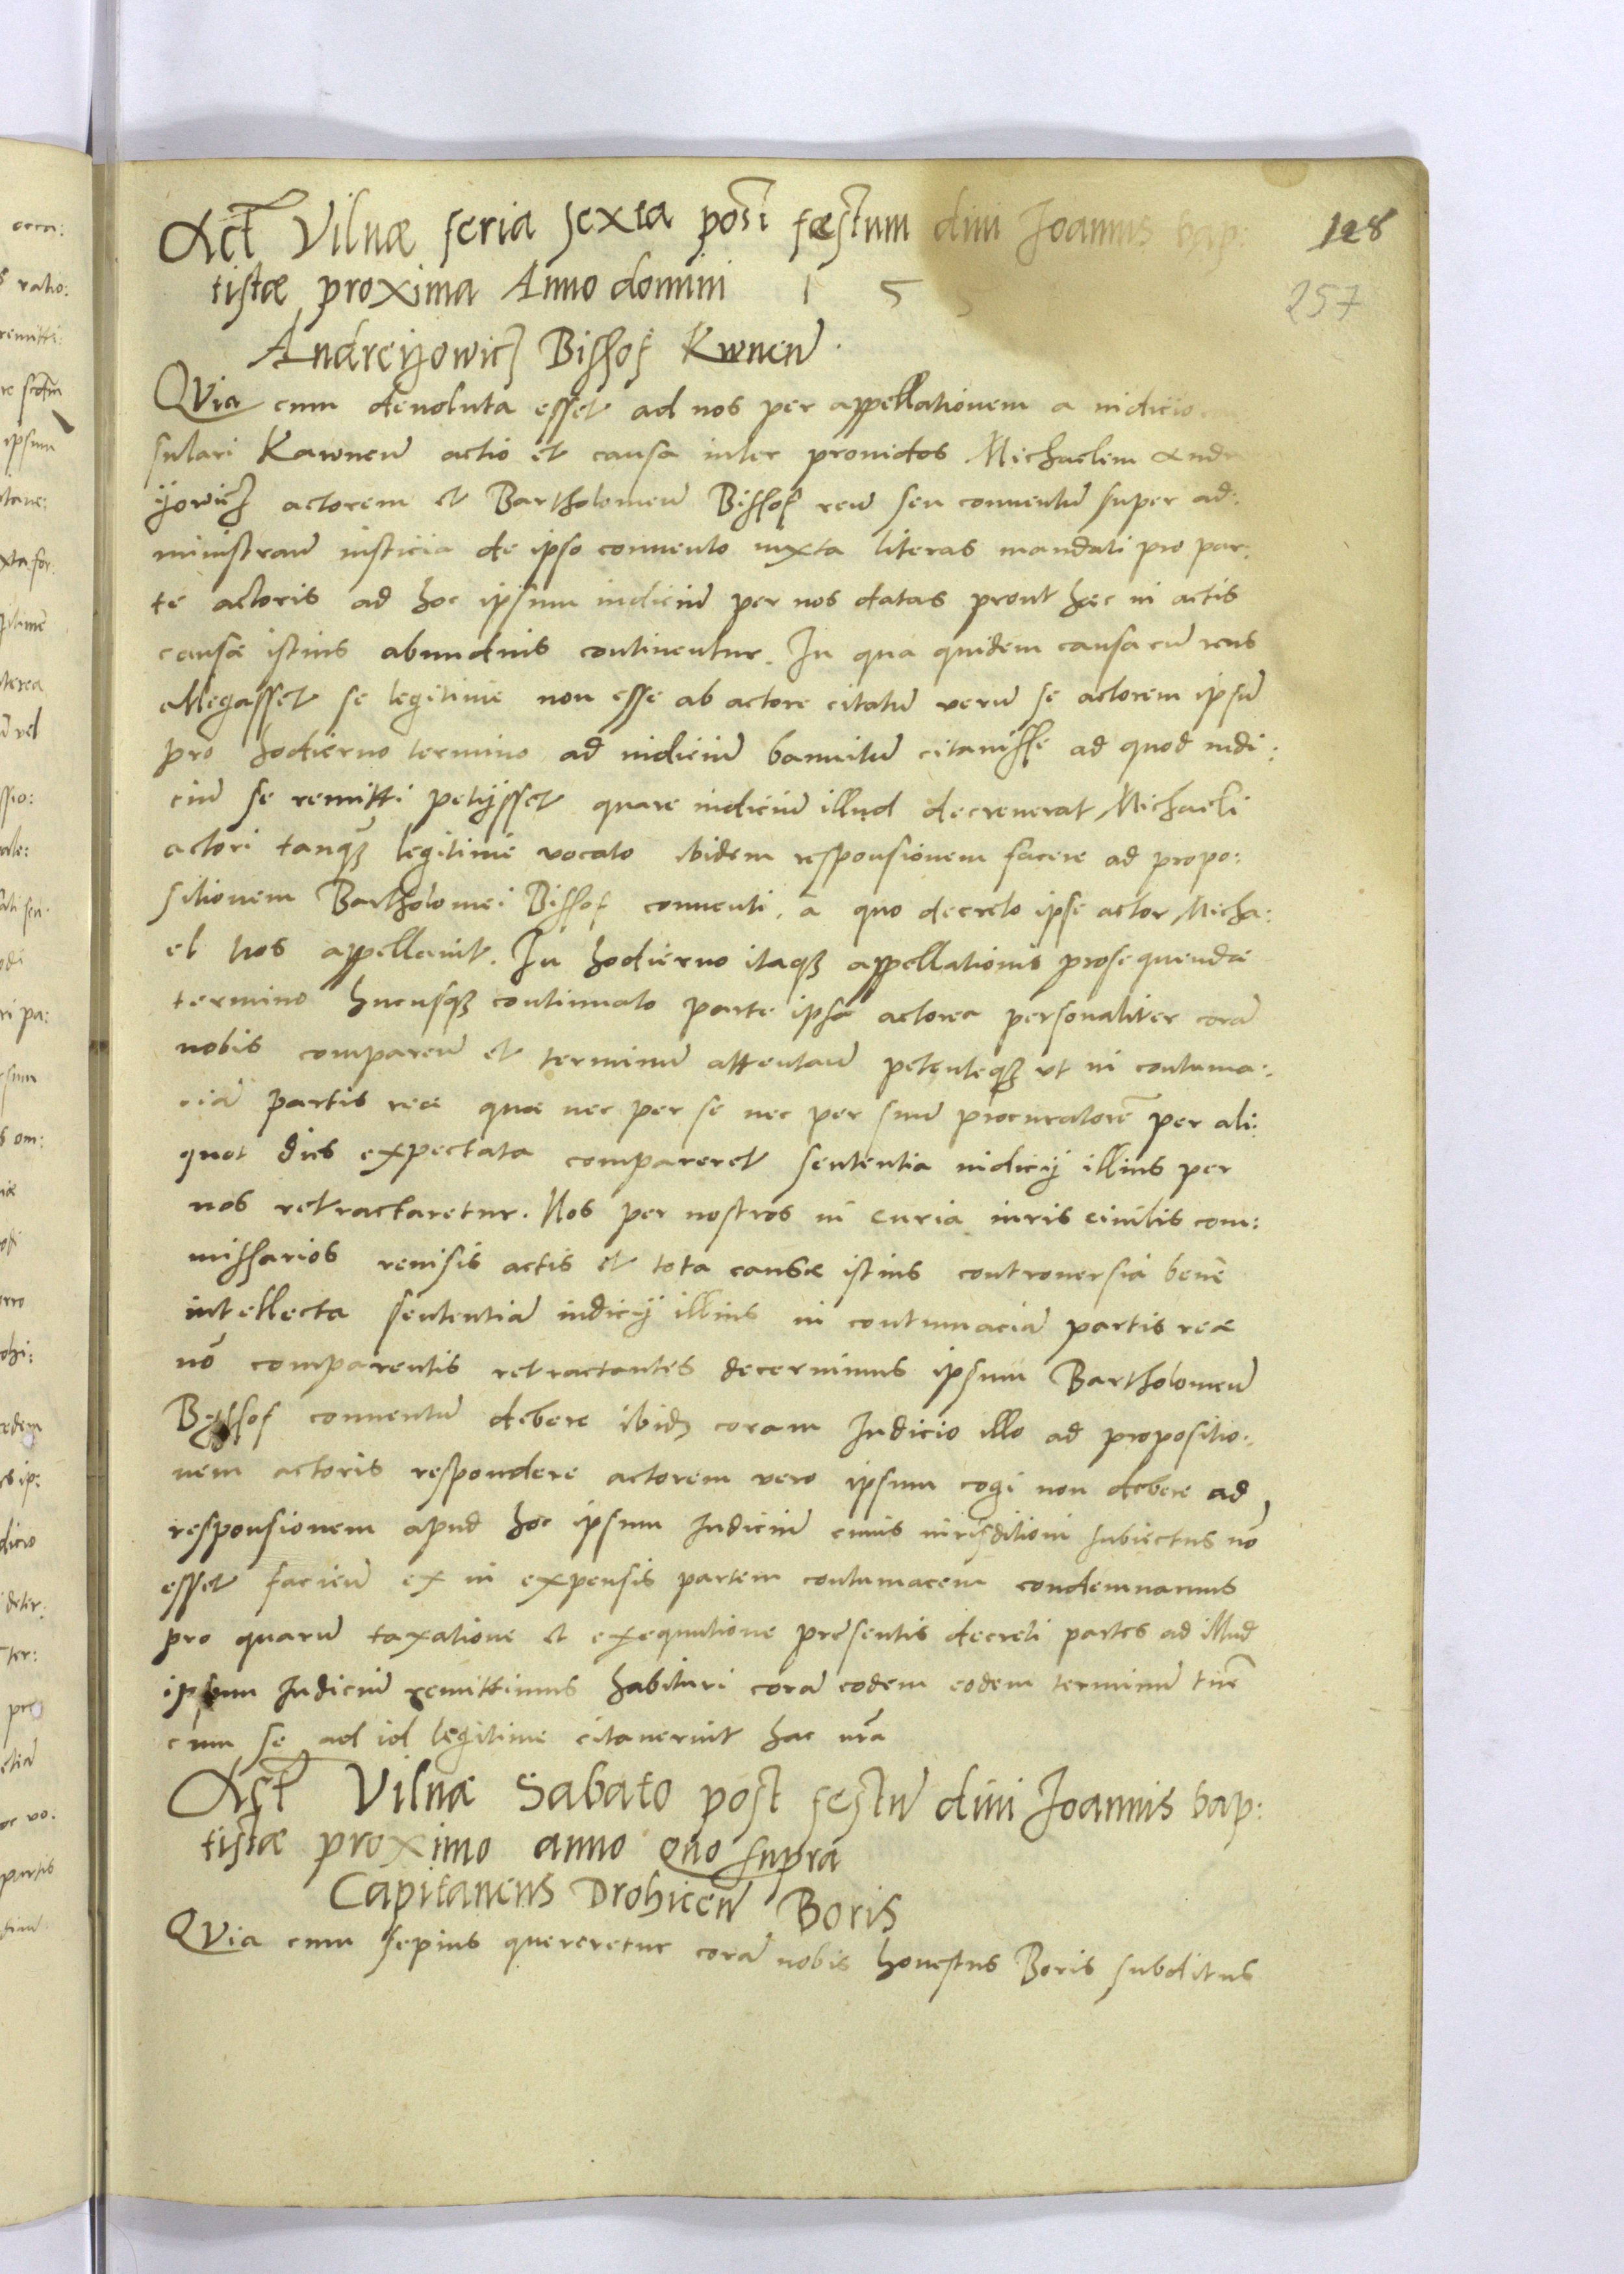 Act̃ Vilnæ feria sexta post fæstum diui Joannis bap:
128
tistæ proxima Anno domini 1 5 5
257
Andreÿowicz Bissof Kwnen̄
QVia cum deuoluta esset ad nos per appellationem a iudicio
sulari Kawnen̄ actio et causa inter prouidos Michaelem Andr
ÿowicz actorem et Bartholomeū Bissof reū seu conuentū super ad:
ministran̄ iusticia de ipso conuento iuxta literas mandati pro par:
te actoris ad hoc ipsum iudiciū per nos datas prout hæc in actis
causæ istius abundius continentur. In qua quidem causa cū reus
allegasset se legitime non esse ab actore citatū verū se actorem ipsū
pro hodierno termino ad iudiciū bannitū citauisse ad quod iudi:
ciū se remitti petijsset quare iudiciū illud decreuerat Michaeli
actori tanqȝ legitime vocato ibidem responsionem facere ad propo:
sitionem Bartholomei Bissof conuenti, a quo decreto ipse actor Micha:
el nos appellauit. In hodierno itaqȝ appellationis prosequendæ
termino hucusqȝ continuato parte ipsa actorea personaliter corā
nobis comparen̄ et terminū attentan̄ petenteqȝ vt in contuma:
ciā partis reæ quæ nec per se nec per suū procuratorē per ali:
quot dies expectata compareret sententia iudicij illius per
nos retractaretur. Nos per nostros in curia iuris ciuilis com:
missarios reuisis actis et tota causæ istius controuersia bene
intellecta sententiā iudicij illius in contumaciā partis reæ
nō comparentis retractantes decernimus ipsum Bartholomeū
Byssof conuentū debere ibidȝ coram Iudicio illo ad propositio:
nem actoris respondere actorem vero ipsum cogi non debere ad
responsionem apud hoc ipsum Iudiciū cuius iurisditioni subiectus nō
esset facien̄ ex in expensis partem contumacem condemnamus
pro quarū taxatione et exequutione præsentis decreti partes ad illud
ipsum Iudiciū remittimus habituri corā eodem eodem terminū tūc
cum se ad id legitime citauerint hac nr̄a
Act̃ Vilnæ Sabato post festū diui Joannis bap:
tistæ proximo anno quo supra
Capitaneus Drohicen̄ Boris
QVia cum sepius quereretur corā nobis honestus Boris subditus